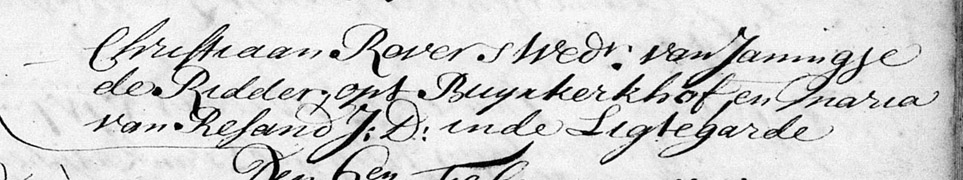 Christiaan Rovers Wedr. van Janingje
de Ridder, opt Buyrkerkhof, en Maria
van Resand J: D: inde Ligtegarde
Den 6en